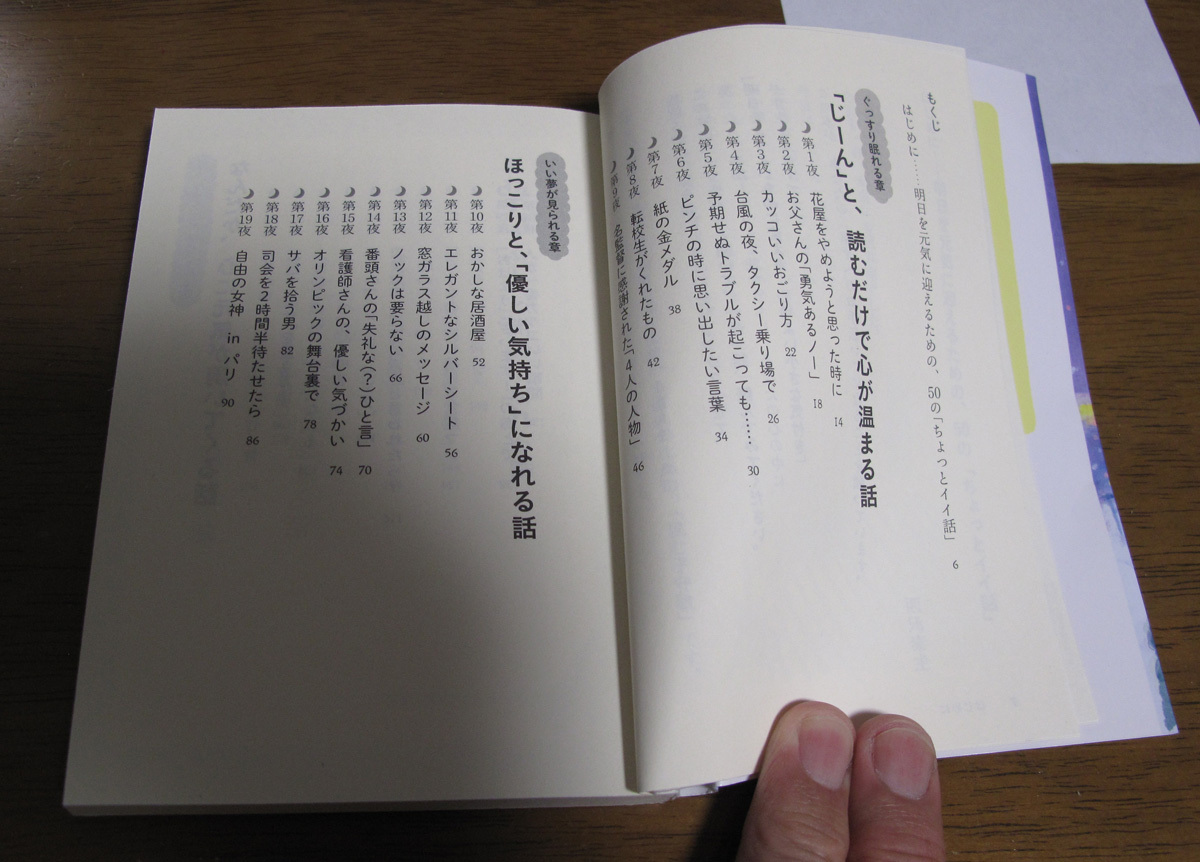 もくじ
はじめに……明日を元気に迎えるための、50の「ちょっとイイ話」 6
ぐっすり眠れる章
「じーん」と、読むだけで心が温まる話
第1夜 花屋をやめようと思った時に 14
第2夜 お父さんの「勇気あるノー」 18
第3夜 カッコいいおごり方 22
第4夜 台風の夜、タクシー乗り場で 26
第5夜 予期せぬトラブルが起こっても…… 30
第6夜 ピンチの時に思い出したい言葉 34
第7夜 紙の金メダル 38
第8夜 転校生がくれたもの 42
第9夜 名監督に感謝された「4人の人物」 46
いい夢が見られる章
ほっこりと、「優しい気持ち」になれる話
第10夜 おかしな居酒屋 52
第11夜 エレガントなシルバーシート 56
第12夜 窓ガラス越しのメッセージ 60
第13夜 ノックは要らない 66
第14夜 番頭さんの「失礼な(?)ひと言」 70
第15夜 看護師さんの、優しい気づかい 74
第16夜 オリンピックの舞台裏で 78
第17夜 サバを拾う男 82
第18夜 司会を2時間半待たせたら 86
第19夜 自由の女神 in パリ 90